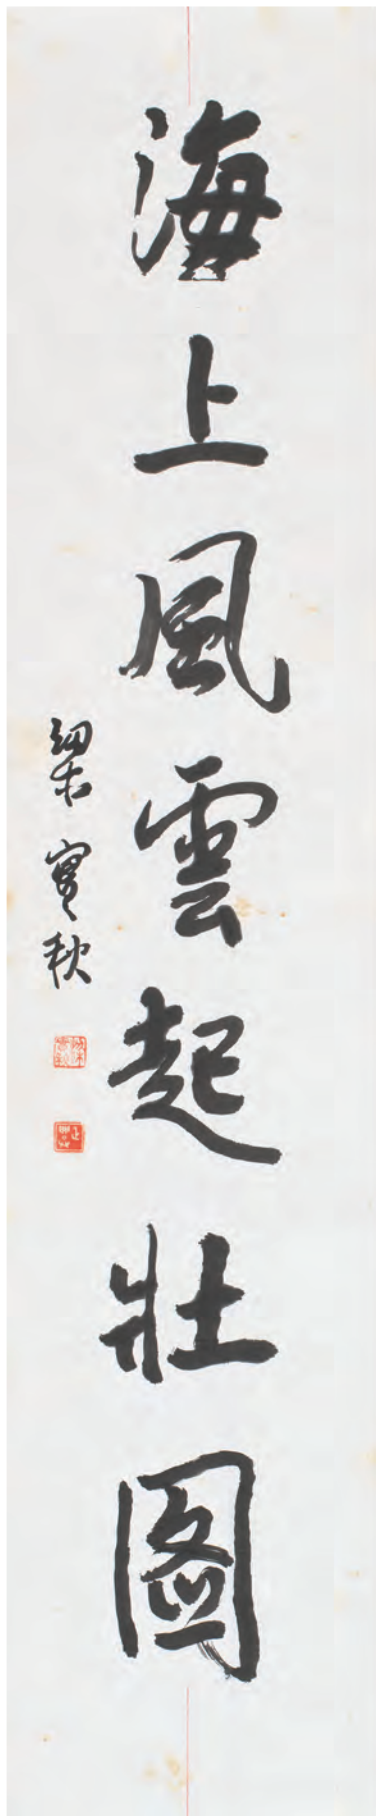 海上風雲起壯圖
梁寔秋